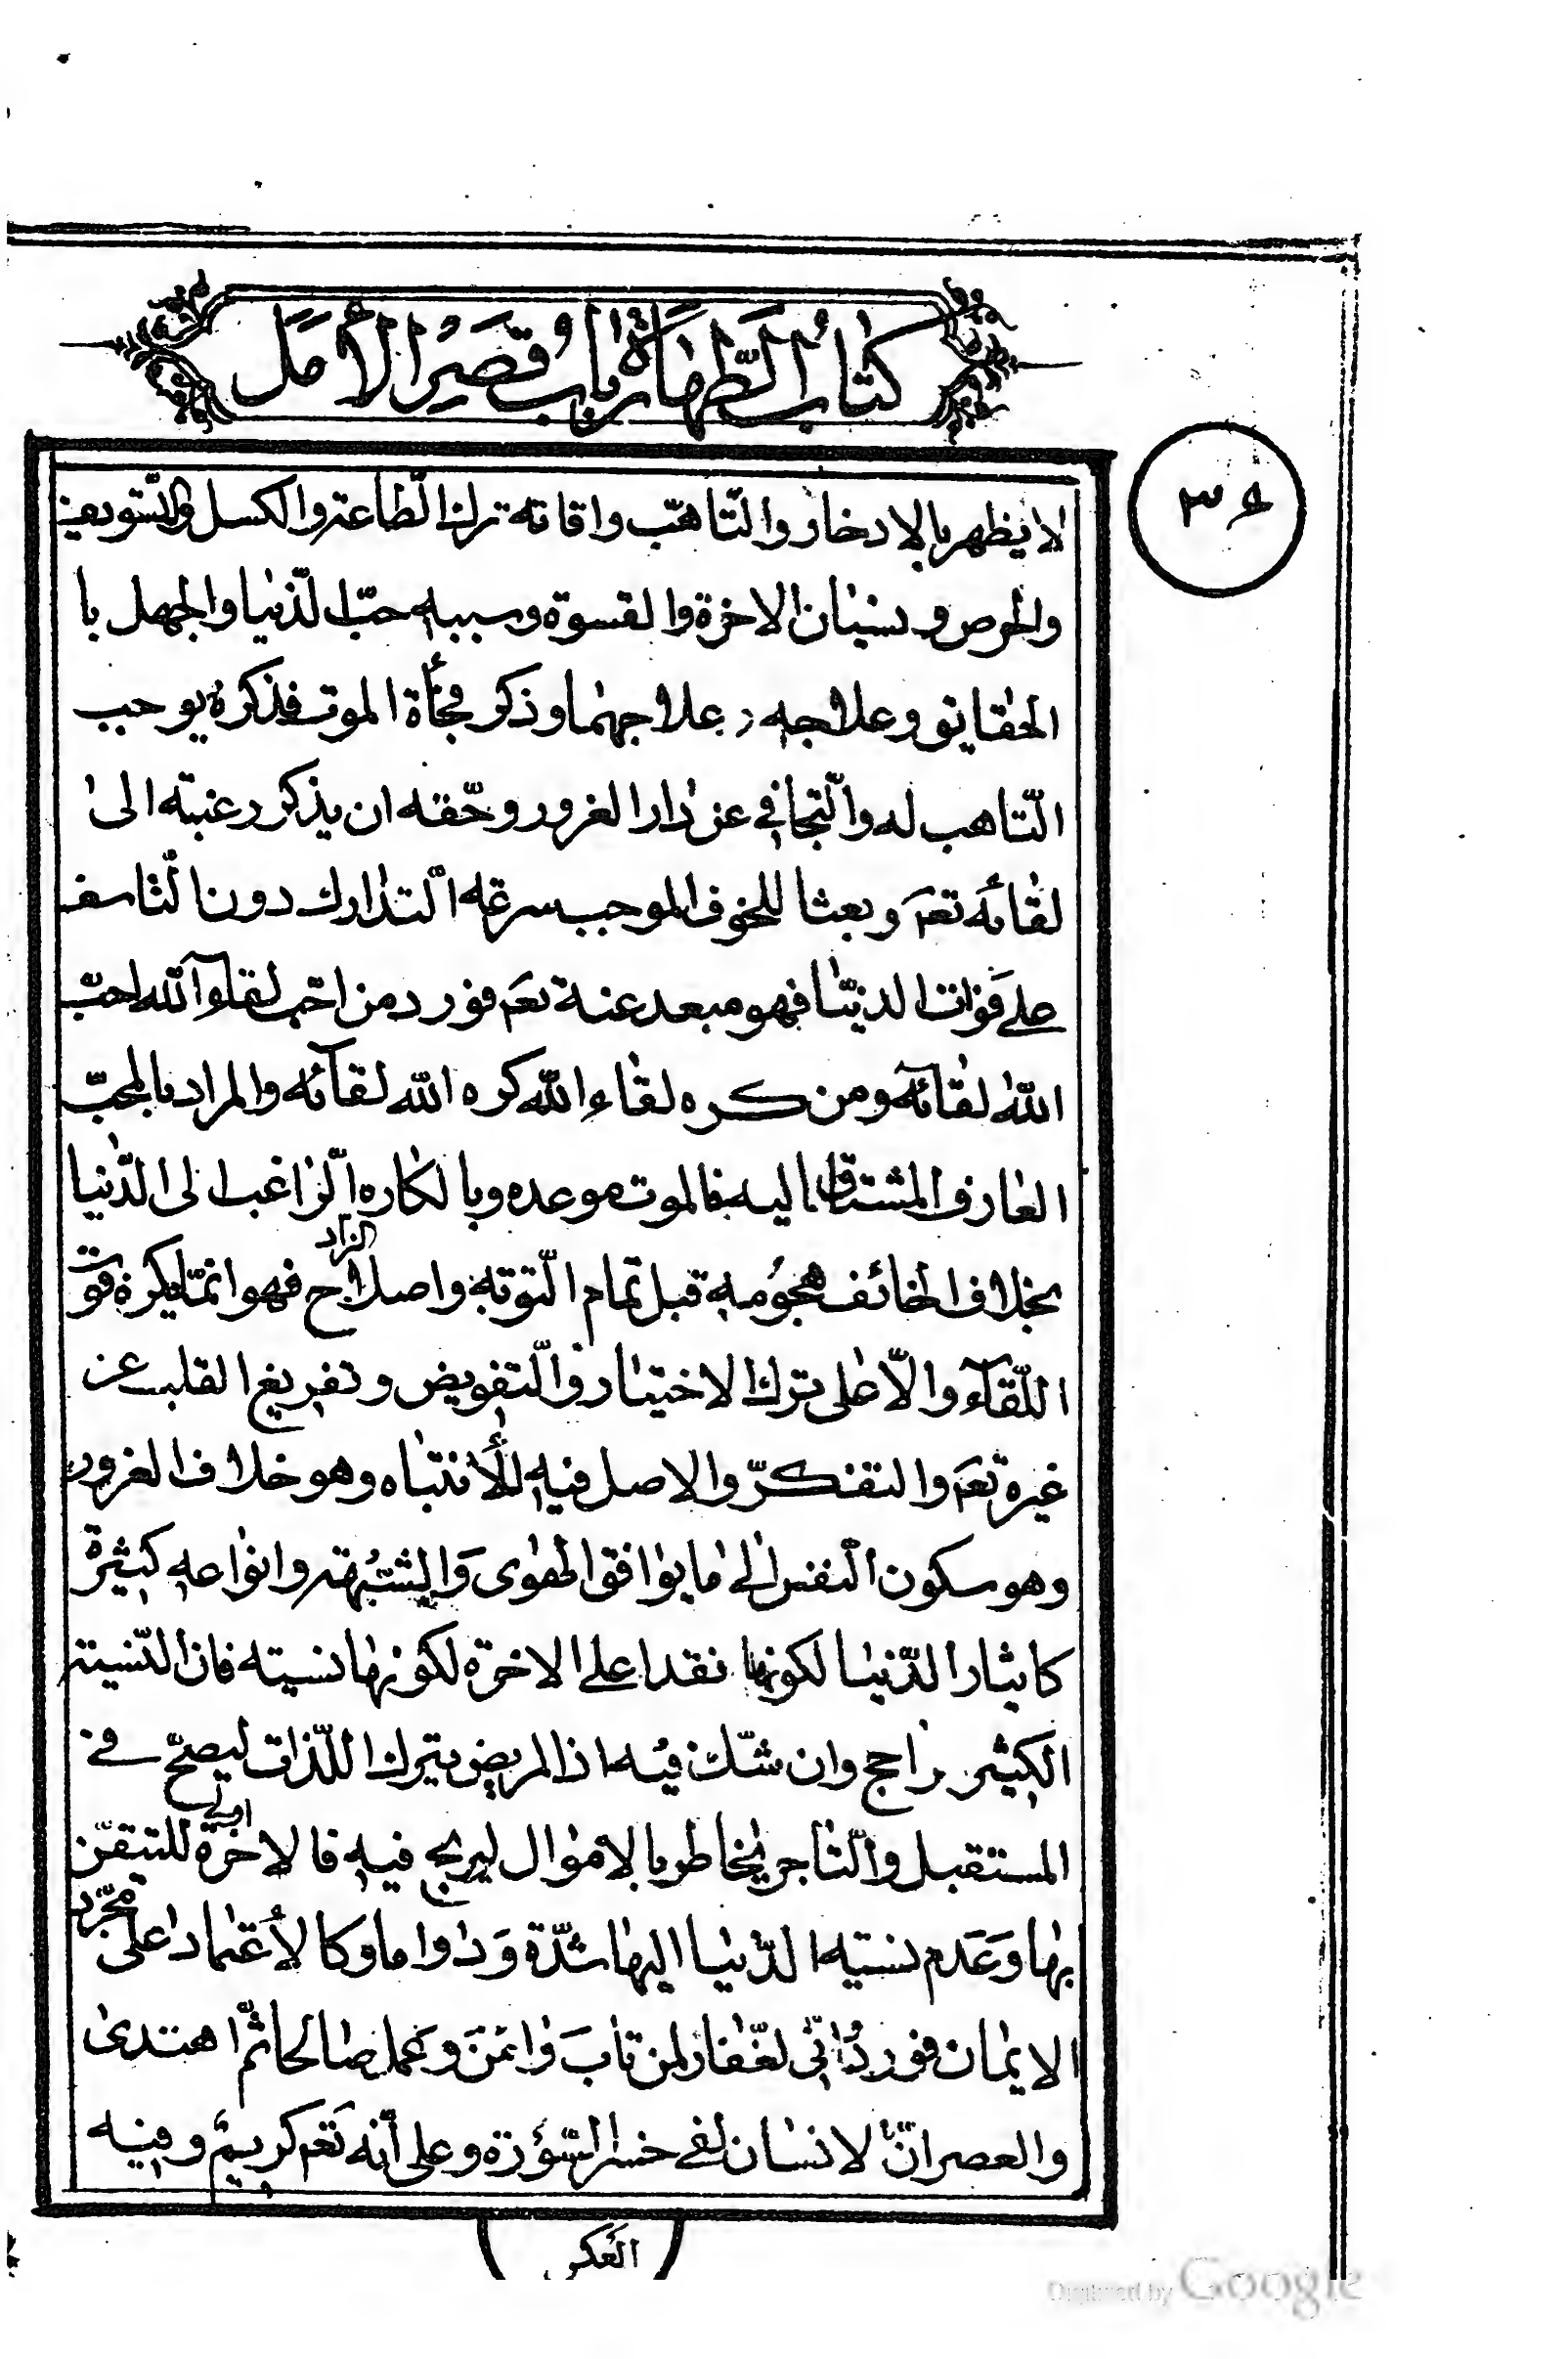 كتاب الطهارة باب قصير الأمل
٣٤
لا يظهر بالادخار والتّاهّب وافاته ترك الطاعة والكسل والتّسويف
والحرص ونسيان الاخرة والقسوة وسببه حبّ الدّنيا والجهل با
الحقايق وعلاجه علاجهما وذكر فجأة الموت فذكره يوجب
التّاهب له والتّجافي عن دار الغرور وحقّه ان يذكر رغبته الى
لقائه تعم وبعثا للخوف الموجب سرعة التدارك دون التّاسف
على فوات الدنيّا فهو مبعد عنه تعم فورد من احبّ لقاء الله احبّ
الله لقائه ومن كره لقاء الله كره الله لقائه والمراد بالمحبّ
العارف المشتاق اليه فالموت موعده وبالكاره الرّاغب الى الدّنيا
بخلاف الخائف هجومه قبل تمام التّوبة واصلاح الزاد فهو انمّا يكره فوت
اللّقاء والّا على ترك الاختيار والتّفويض وتفريغ القلب عن
غيره تعم والتفكّر والاصل فيه الأنتباه وهو خلاف الغرور
وهو سكون النّفس الى ما يوافق الهوى والشّبهة وانواعه كثيرة
كايثار الدّنيا لكونها نقدا على الاخرة لكونها نسيته فان النّسيته
الكثير راجح وان شكّ فيه اذ المريض يترك اللّذات ليصحّ في
المستقبل والتّاجر يخاطر بالاموال ليربح فيه فالاخرة اولى للتيقّن
بها وعدم نسيته الدّنيا اليها شدّة ودواما وكالأعتماد على مجّرد
الايمان فورد انّى لغّفار لمن تاب وامن وعمل صالحا ثمّ اهتدى
والعصر انّ الانسان لفي خسر السّورة وعلى أنّه تعم كريم وفيه
(العكر)
Digitized by Google